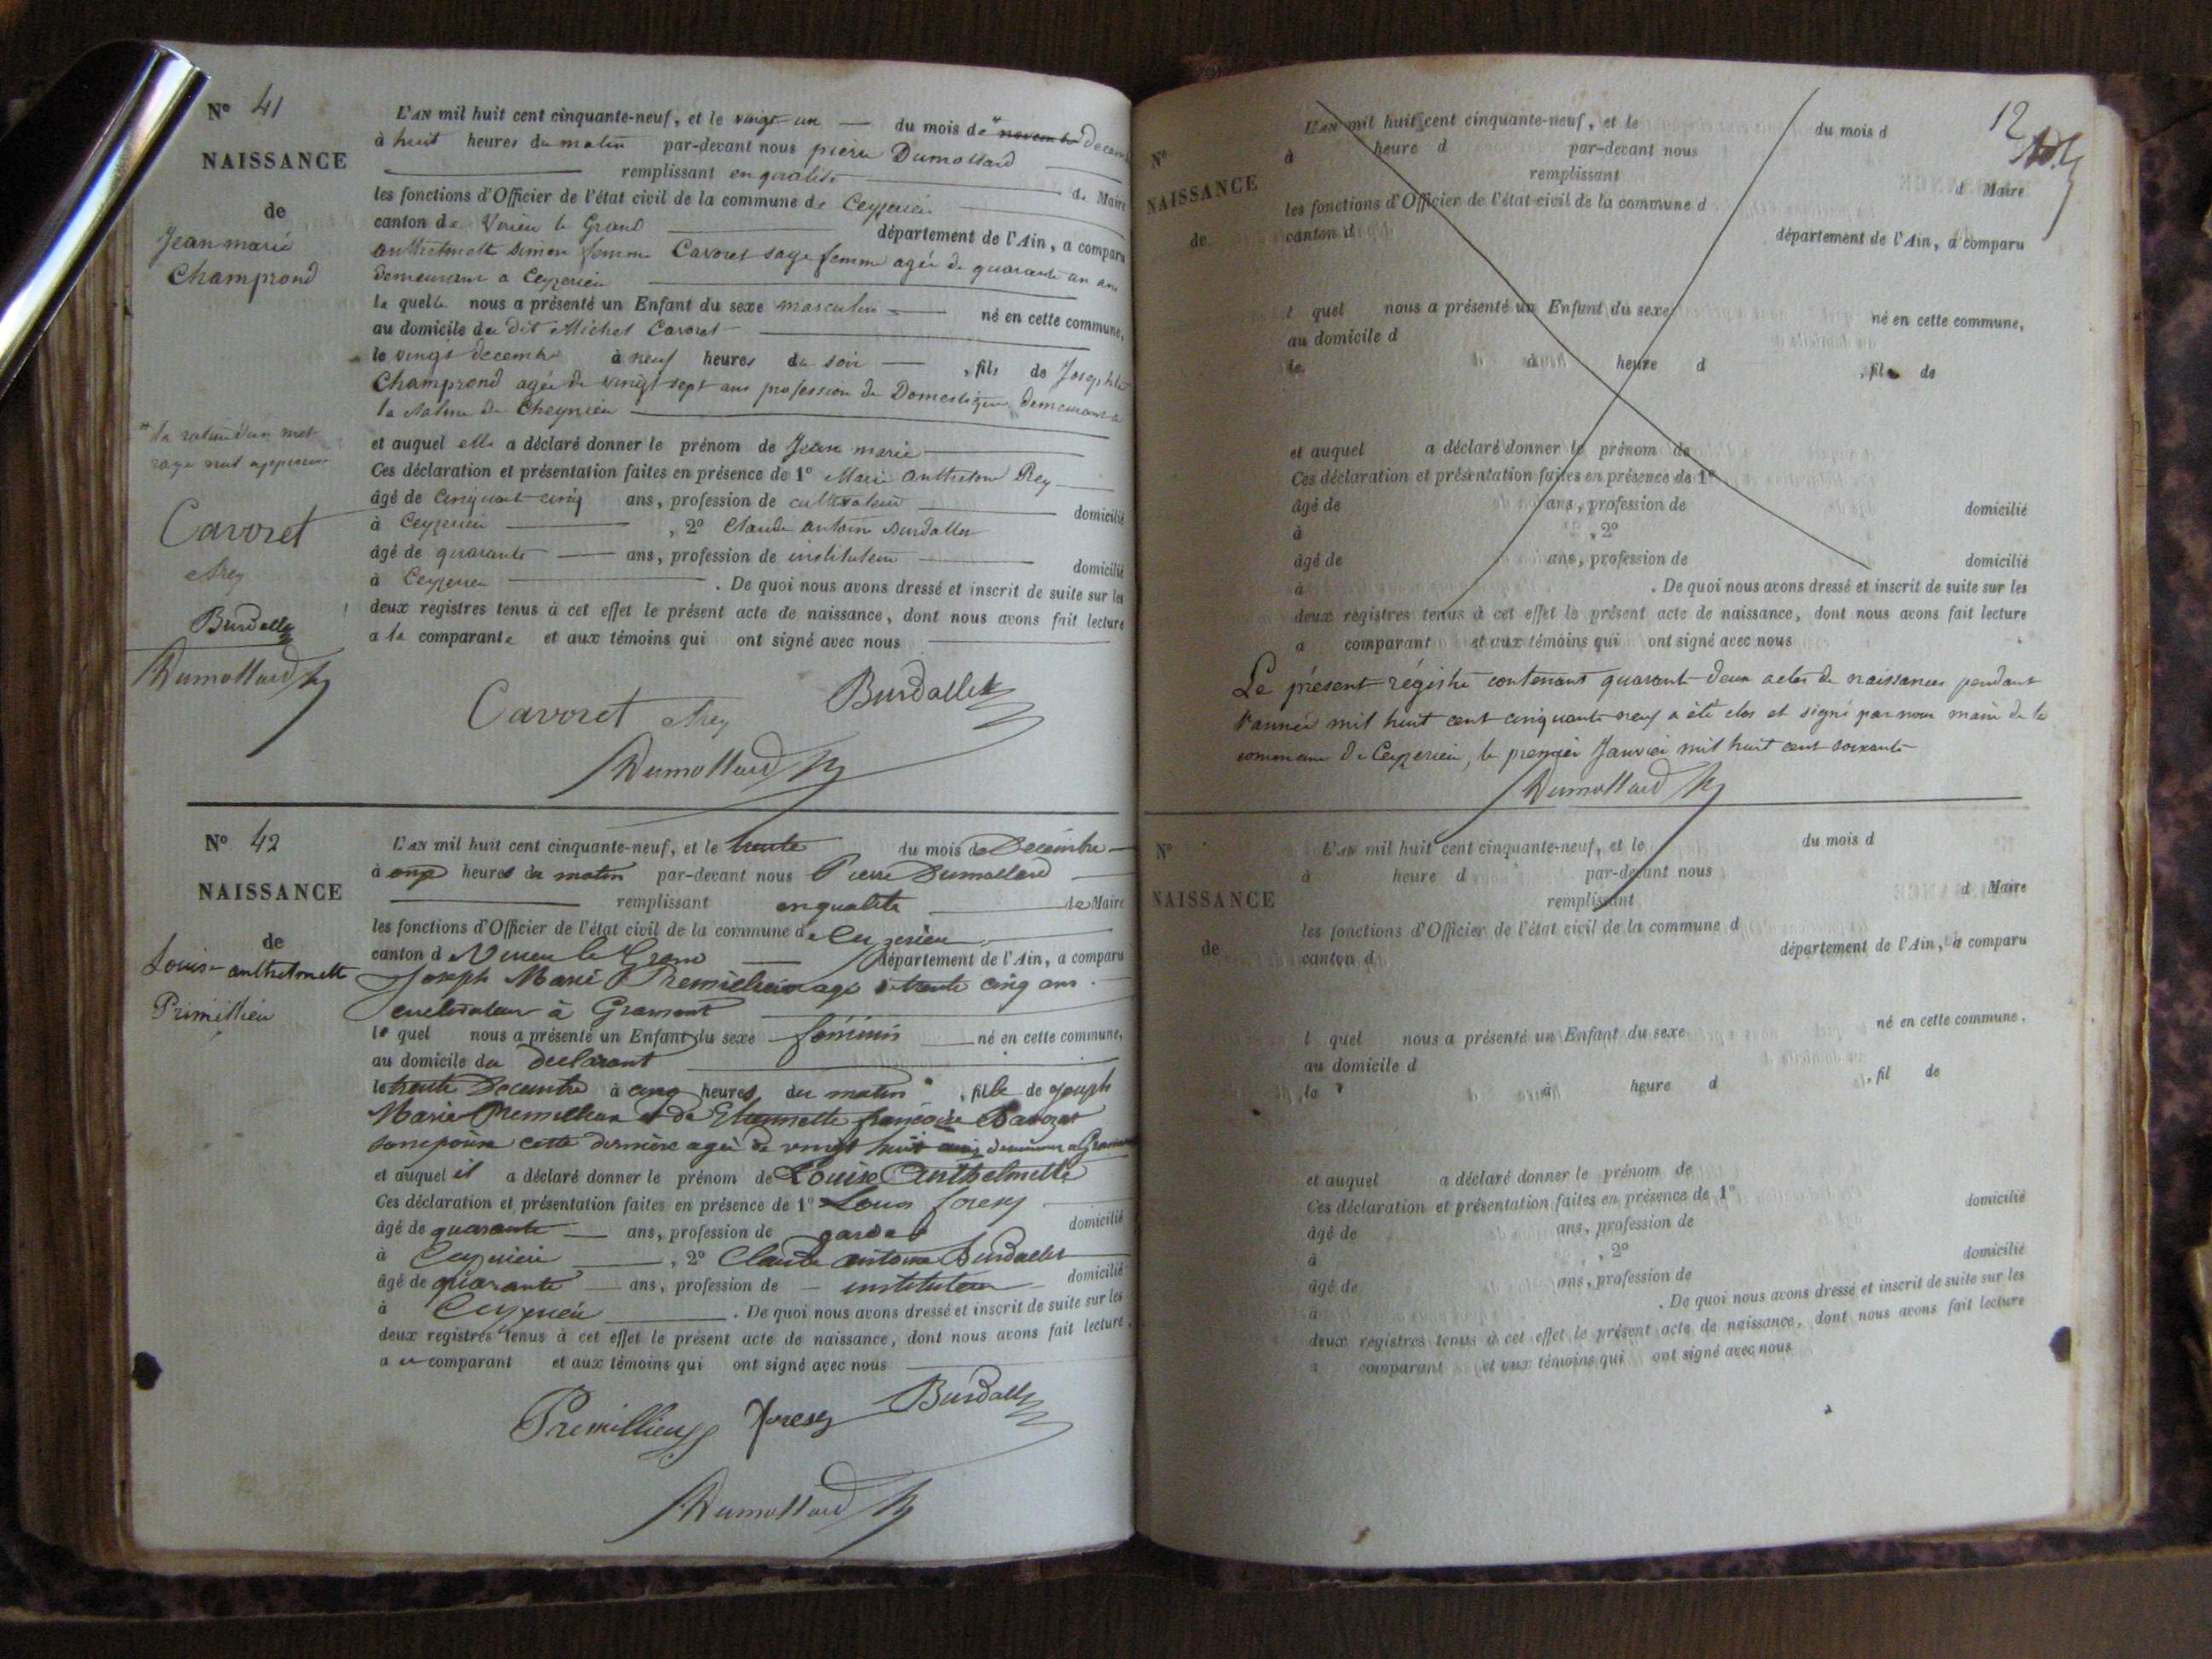 N° 41
NAISSANCE
de
Jean marie
Champrond
L'AN mil huit cent cinquante-neuf, et le vingt un du mois de * novembre Decem
à huit heures du matin par-devant nous pierre Dumollard
remplissant en qualité de Maire
les fonctions d'Officier de l'état civil de la commune de Ceyzerieu
canton de Virieu le Grand département de l'Ain, a comparu
anthelmette Simon femme Cavoret sage femme agée de quarante un ans
demeurant a Ceyzerieu
la quelle nous a présenté un Enfant du sexe masculin né en cette commune,
au domicile du dit Michel Cavoret
le vingt decembre à neuf heures du soir , fils de Josephte
Champrond agée de vingt sept ans profession de Domestique demeurant a
la de Cheynieu
et auquel elle a déclaré donner le prénom de Jean marie
Ces déclaration et présentation faites en présence de 1° Marie Rey
âgé de cinquante-cinq ans, profession de cultivateur domicilié
à Ceyzerieu , 2° Claude antoine Burdallet
âgé de quarante ans, profession de instituteur domicilié
à Ceyzerieu . De quoi nous avons dressé et inscrit de suite sur les
deux registres tenus à cet effet le présent acte de naissance, dont nous avons fait lecture
a la comparante et aux témoins qui ont signé avec nous
* la rature d'un mot
rayé nul
Cavoret
Rey
Burdallet
Dumollard
Cavoret Rey Burdallet
Dumollard
N° 42
NAISSANCE
de
Louise anthelmette
Primillieu
L'AN mil huit cent cinquante-neuf, et le trente du mois de Decembre
à onze heures du matin par-devant nous Pierre Dumollard
remplissant en qualité de Maire
les fonctions d'Officier de l'état civil de la commune de Ceyzerieu
canton d Virieu le Grand département de l'Ain, a comparu
Joseph Marie Premillieu agé de trente cinq ans
cultivateur à Gramont
le quel nous a présenté un Enfant du sexe féminin né en cette commune,
au domicile du declarant
le trente Decembre à cinq heures du matin , fille de Joseph
Marie Premillieu et de françoise
son épouse cette dernière agée de vingt huit ans demeurant a Gramont
et auquel il a déclaré donner le prénom de Louise Anthelmette
Ces déclaration et présentation faites en présence de 1° Louis forery
âgé de quarante ans, profession de garde domicilié
à Ceyzerieu , 2° Claude antoine Burdallet
âgé de quarante ans, profession de instituteur domicilié
à Ceyzerieu . De quoi nous avons dressé et inscrit de suite sur les
deux registres tenus à cet effet le présent acte de naissance, dont nous avons fait lecture
a ce comparant et aux témoins qui ont signé avec nous
Premillieu Burdallet
Dumollard
12
N°
NAISSANCE
de
L'AN mil huit cent cinquante-neuf, et le du mois d
à heure d par-devant nous
remplissant d Maire
les fonctions d'Officier de l'état civil de la commune d
canton d département de l'Ain, a comparu
l quel nous a présenté un Enfant du sexe né en cette commune,
au domicile d
le à heure d , fil de
et auquel a déclaré donner le prénom de
Ces déclaration et présentation faites en présence de 1°
âgé de ans, profession de domicilié
à , 2°
âgé de ans, profession de domicilié
à . De quoi nous avons dressé et inscrit de suite sur les
deux registres tenus à cet effet le présent acte de naissance, dont nous avons fait lecture
a comparant et aux témoins qui ont signé avec nous
Le présent régistre contenant quarante deux actes de naissances pendant
l'année mil huit cent cinquante neuf a été clos et signé par nous maire de la
commune de Ceyzerieu, le premier Janvier mil huit cent soixante
Dumollard
N°
NAISSANCE
de
L'AN mil huit cent cinquante-neuf, et le du mois d
à heure d par-devant nous
remplissant d Maire
les fonctions d'Officier de l'état civil de la commune d
canton d département de l'Ain, a comparu
l quel nous a présenté un Enfant du sexe né en cette commune,
au domicile d
le à heure d , fil de
et auquel a déclaré donner le prénom de
Ces déclaration et présentation faites en présence de 1°
âgé de ans, profession de domicilié
à , 2°
âgé de ans, profession de domicilié
à . De quoi nous avons dressé et inscrit de suite sur les
deux registres tenus à cet effet le présent acte de naissance, dont nous avons fait lecture
a comparant et aux témoins qui ont signé avec nous